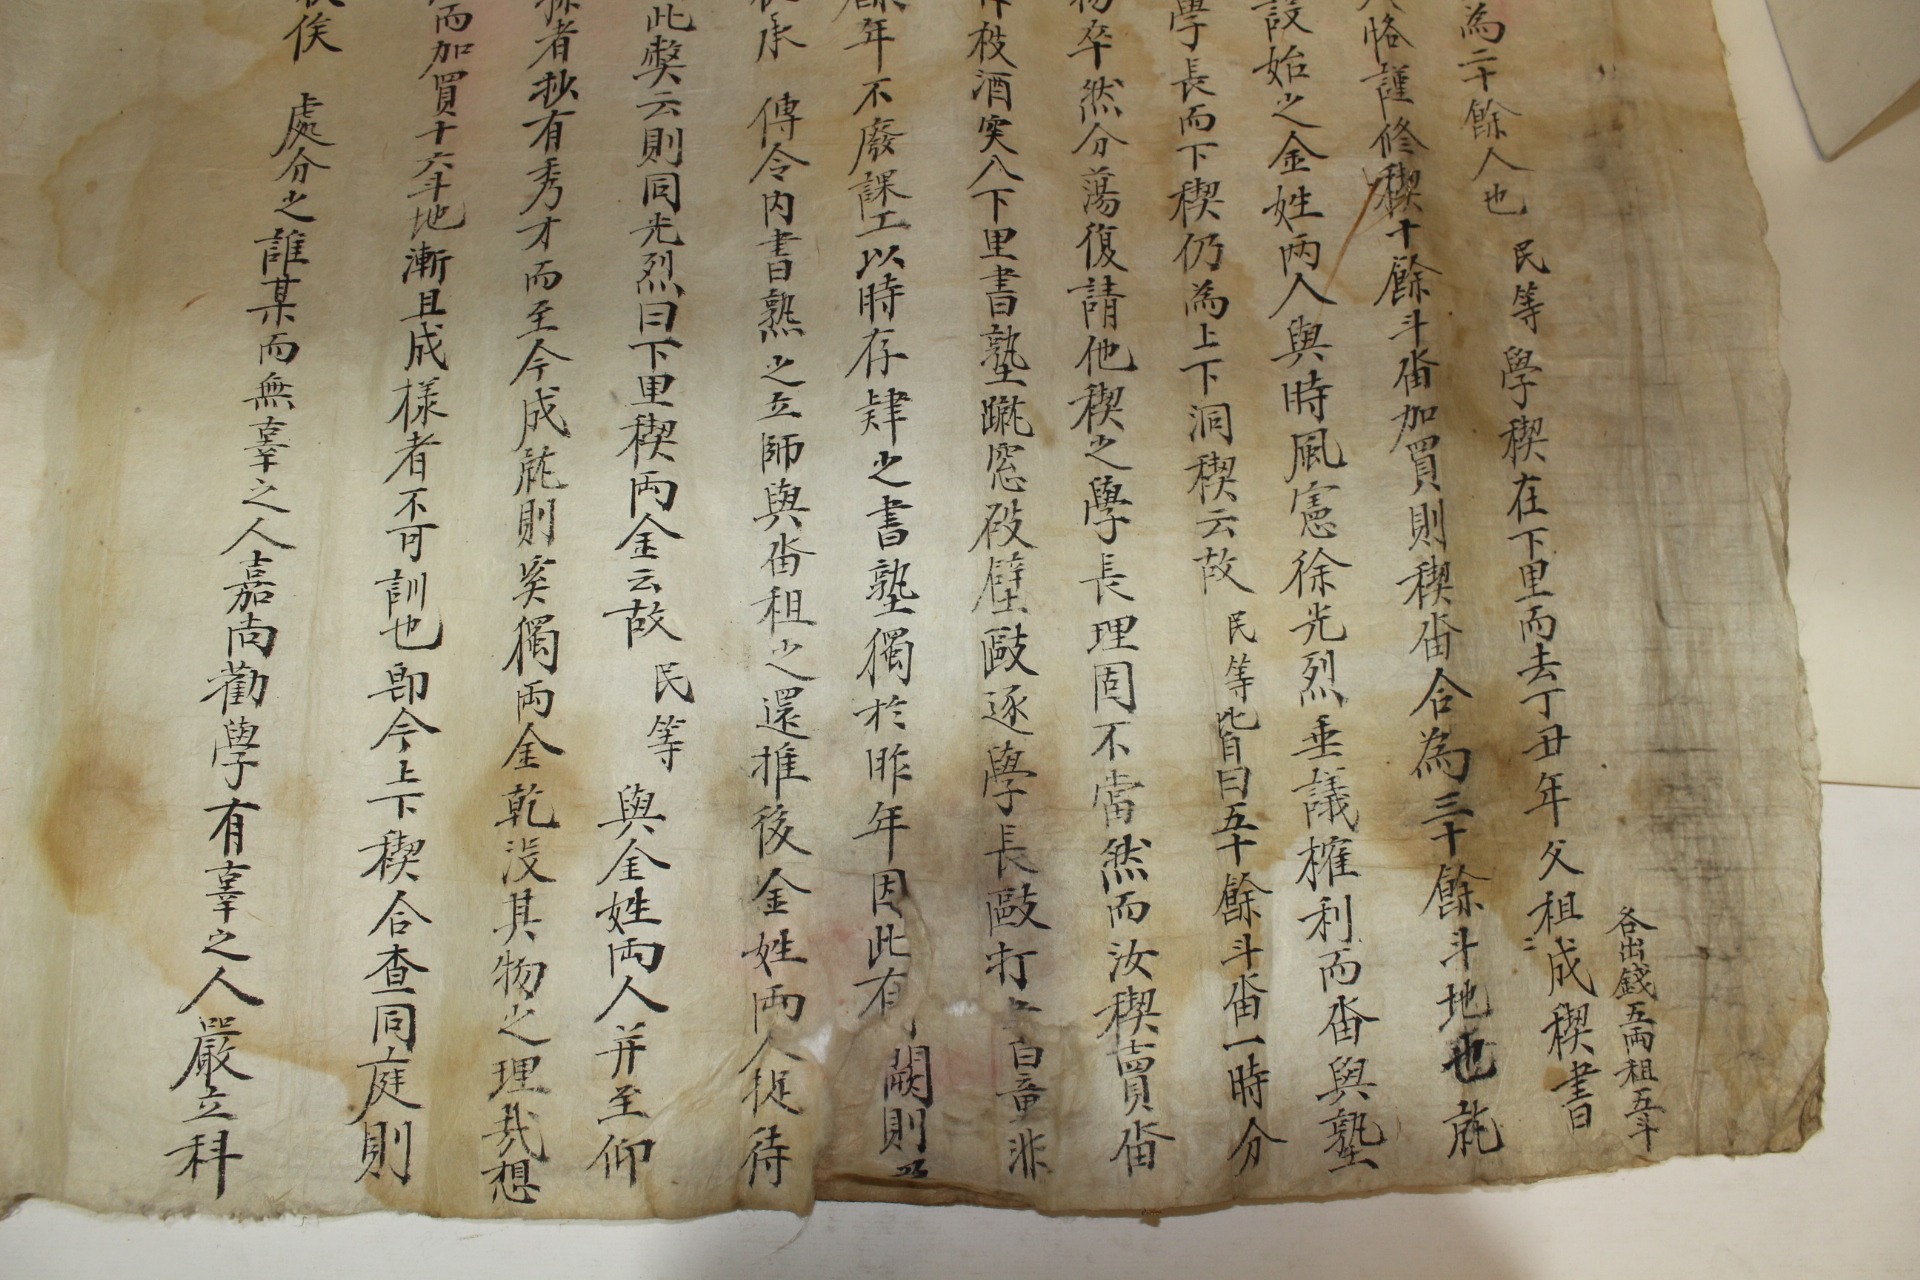 各出錢五兩租五斗
民等學稧在下里而去丁丑年父祖成稧書
為二十餘人也
恪謹修稧十餘斗畓加買則稧畓合為三十餘斗地也能
設始之金姓兩人與時風憲徐光烈垂議榷利而畓與塾
學長而下稧仍為上下洞稧云故民等皆自曰五十餘斗畓一時分
物卒然分蕩復請他稧之學長理固不當然而汝稧賣畓
杖酒突入下里書塾蹴窓破壁敺逐學長敺打 童非
餘年不廢課工以時存肄之書塾獨於昨年因此有 闕則
承傳令內書熟之立師與畓租之還推後金姓兩人捉待
此弊云則同光烈曰下里稧兩金云故民等與金姓兩人并至仰
孫者抄有秀才而至今成能則奚獨兩金乾沒其物之理哉想
而加買十六斗地漸且成樣者不可訓也即今上下稧合查同庭則
俟處分之誰某而無辜之人嘉尚勸學有辜之人嚴立科